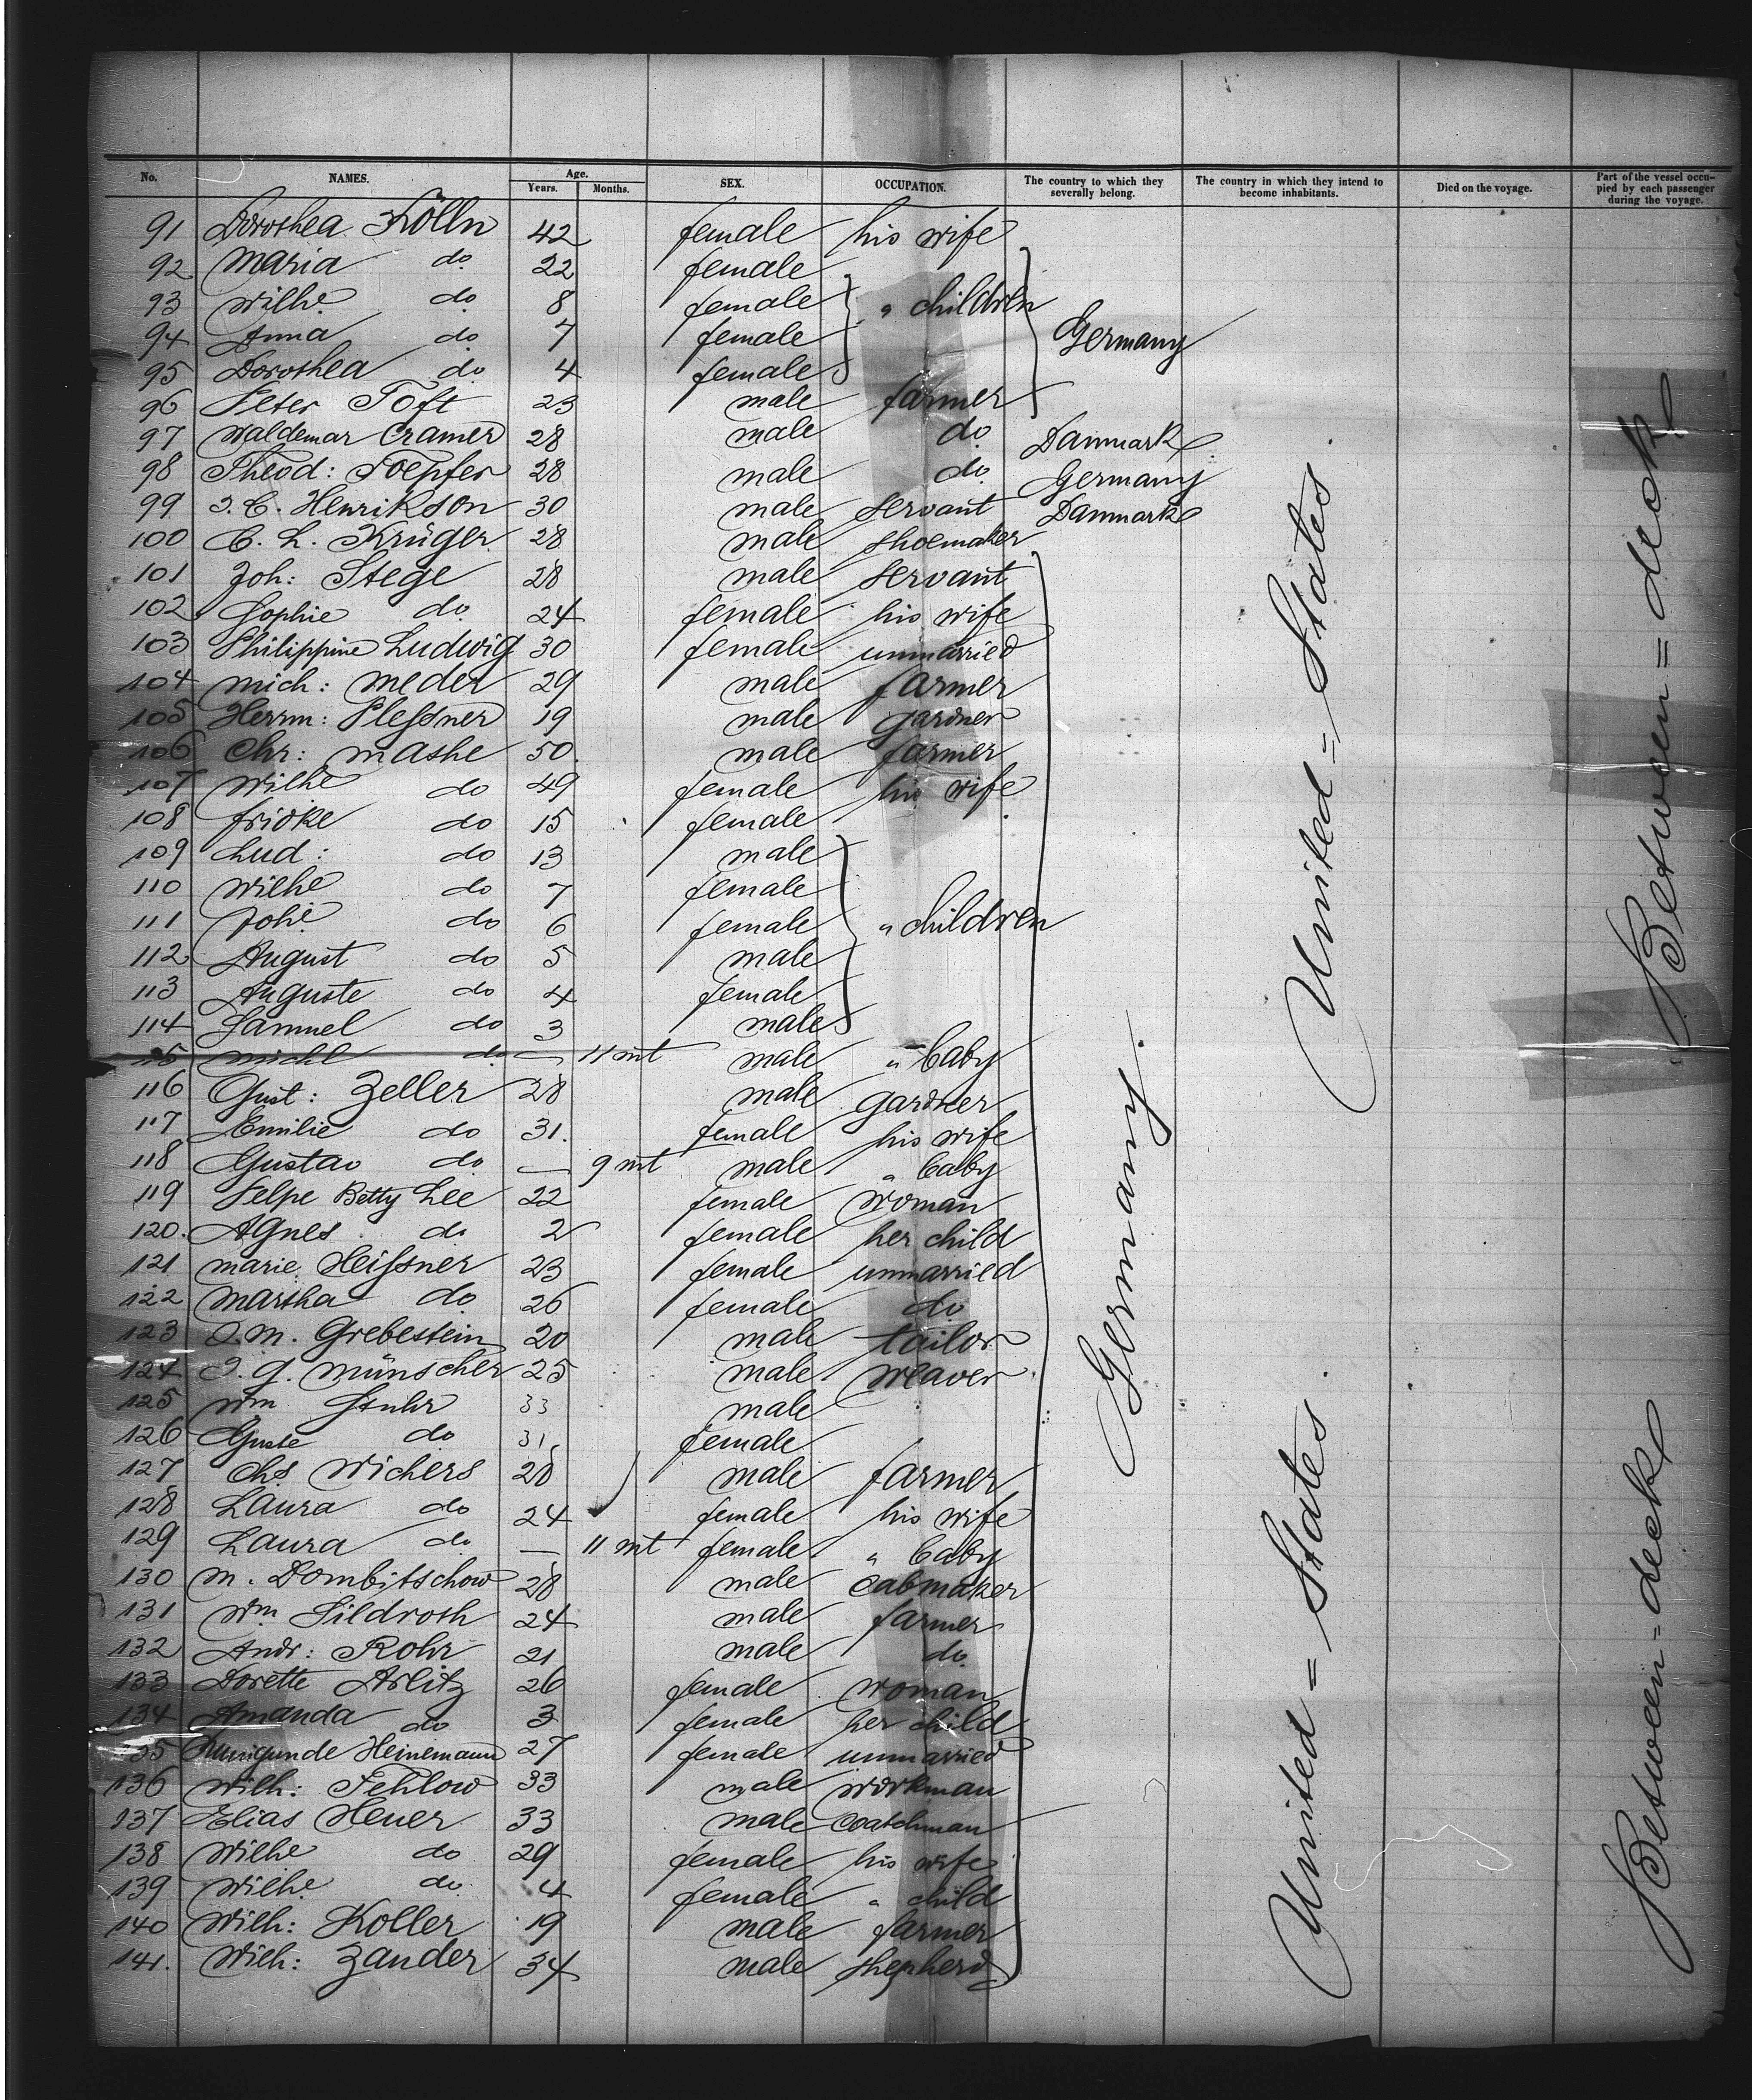 No. NAMES. Age. Years. Months. SEX. OCCUPATION. The country to which they severally belong. The country in which they intend to become inhabitants. Died on the voyage. Part of the vessel occupied by each passenger during the voyage.
91 Dorothea Kölln 42 female his wife
92 Maria do 22 female
93 Wilhe. do 8 female " children
94 Anna do 7 female Germany
95 Dorothea do 4 female
96 Peter Toft 23 male farmer
97 Waldemar Cramer 28 male do Danmark
98 Theod: Toepfer 28 male do Germany
99 J. C. Henrikson 30 male servant Danmark
100 C. L. Krüger 28 male shoemaker
101 Joh: Stege 28 male servant
102 Sophie do 24 female his wife
103 Philippine Ludwig 30 female unmarried
104 Mich: Meder 29 male farmer
105 Herrm: Plessner 19 male gardner
106 Chr: Mashe 50 male farmer
107 Wilhe do 49 female his wife
108 Fridke do 15 female
109 Lud: do 13 male
110 Wilhe do 7 female
111 Johe do 6 female " children
112 August do 5 male
113 Auguste do 4 female
114 Samuel do 3 male
115 Michl do — 11 mt male " baby
116 Gust: Zeller 28 male gardner
117 Emilie do 31. female his wife
118 Gustav do — 9 mt male " baby
119 Betty Lee 22 female woman
120. Agnes do 2 female her child
121 Marie Heissner 23 female unmarried
122 Martha do 26 female do
123 O. M. Grebestein 20 male tailor
124 J. G. Münscher 25 male weaver
125 Wm Stuhr 33 male
126 Guste do 31. female
127 Chs Wichers 28 male farmer
128 Laura do 24 female his wife
129 Laura do — 11 mt female " baby
130 M. Dombitschow 28 male cabmaker
131 Wm Sildroth 24 male farmer
132 Andr: Rohr 21 male do
133 Dorette Arlitz 26 female woman
134 Amanda do 3 female her child
135 Kunigunde Heinemann 27 female unmarried
136 Wilh: Fehlow 33 male workman
137 Elias Heuer 33 male coatchman
138 Wilhe do 29 female his wife
139 Wilhe. do 4 female " child
140 Wilh: Koller 19 male farmer
141. Wilh: Zander 34 male shepherd
Germany.
United = States
United = States
Between = deck
Between = deck